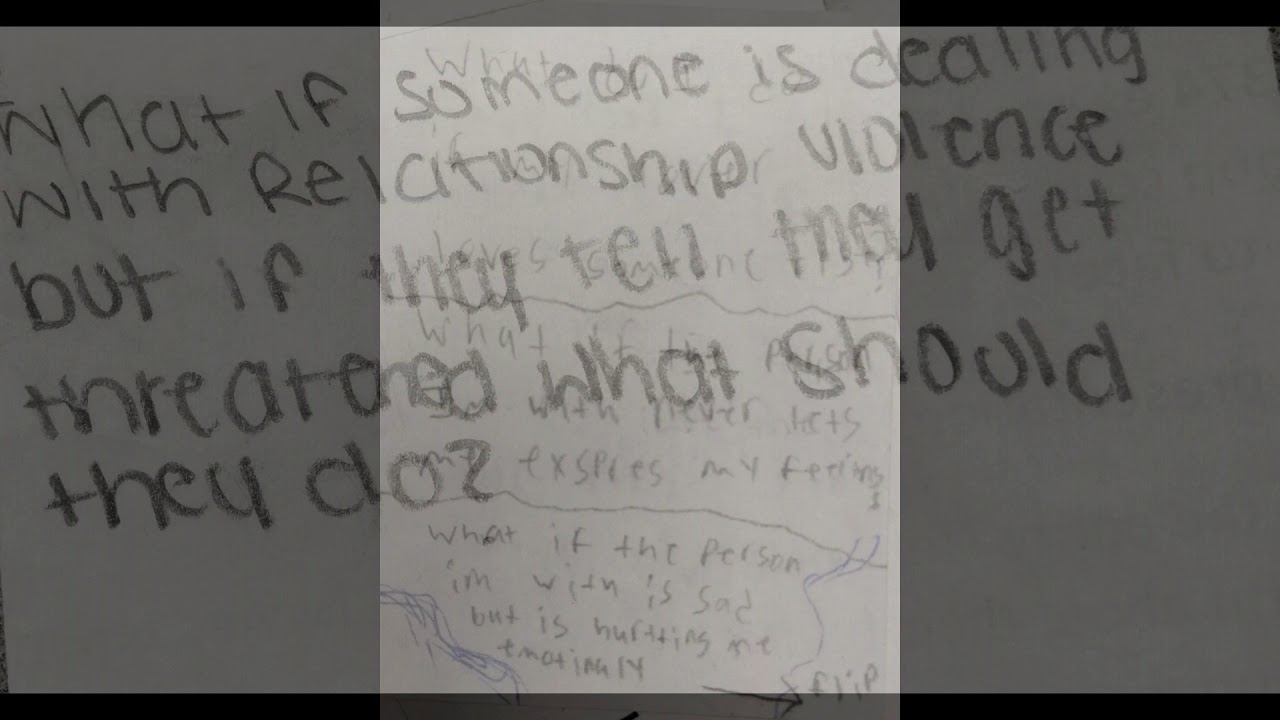 What if someone is dealing
with Relationship violence
but if they tell they get
threatened what should
they do?
What if the person
with never lets
me exspres my feelings
what if the person
im with is sad
but is hurtting me
emotinaly
flip